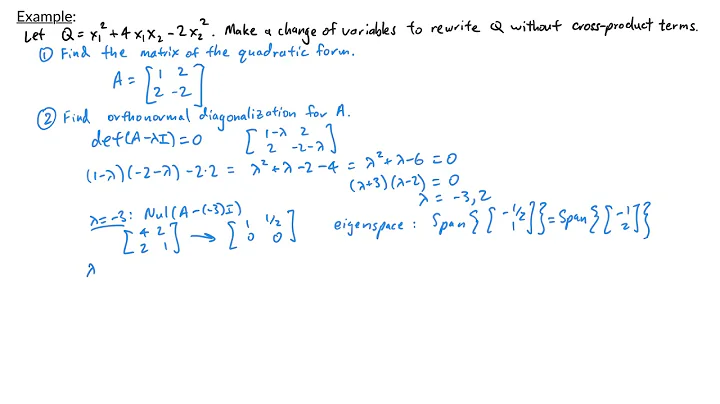 Example:
Let Q = x₁² + 4x₁x₂ - 2x₂². Make a change of variables to rewrite Q without cross-product terms.
① Find the matrix of the quadratic form.
A = [1 2; 2 -2]
② Find orthonormal diagonalization for A.
det(A-λI) = 0 [1-λ 2; 2 -2-λ]
(1-λ)(-2-λ) - 2·2 = λ² + λ - 2 - 4 = λ² + λ - 6 = 0
(λ+3)(λ-2) = 0
λ = -3, 2
λ = -3: Nul(A-(-3)I)
[4 2; 2 1] → [1 1/2; 0 0] eigenspace: Span{[-1/2; 1]} = Span{[-1; 2]}
λ